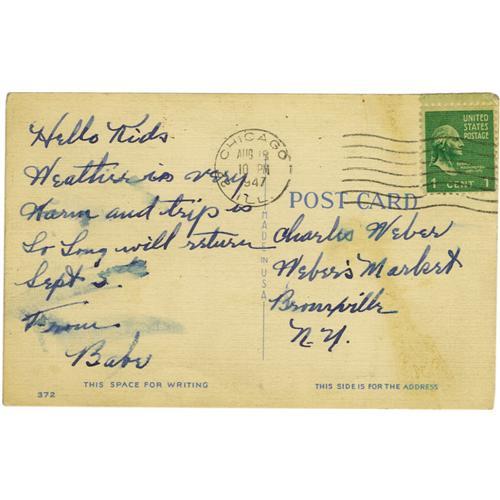 Hello Kids
Weather is very
Warm and trip is
So Long will return
Sept 5.
From
Babe
THIS SPACE FOR WRITING
372
CHICAGO
AUG 18
10 PM
1947
ILL
MADE IN U.S.A.
UNITED
STATES
POSTAGE
1 CENT 1
POST CARD
Charles Weber
Weber's Market
Bronxville
N.Y.
THIS SIDE IS FOR THE ADDRESS